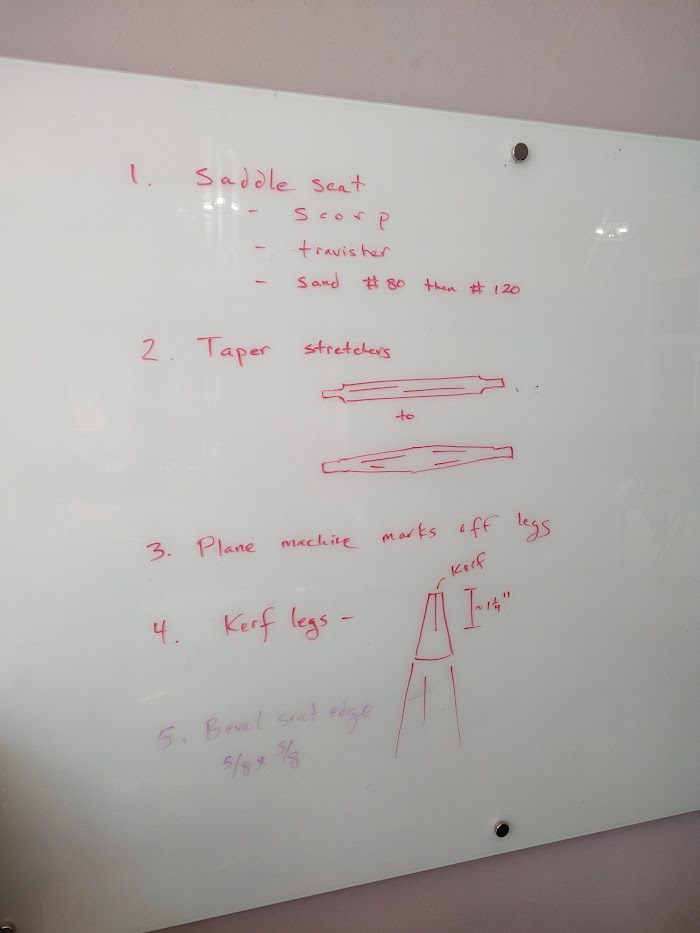 1. Saddle seat
- Scorp
- travisher
- Sand #80 then #120
2. Taper stretchers
to
3. Plane machine marks off legs
Kerf
~1¼"
4. Kerf legs -
5. Bevel seat edge
5/8 x 5/8